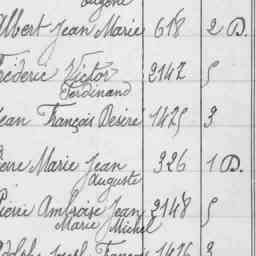 Eugène
Albert Jean Marie 618 2 D.
Frédéric Victor 2142 5
Ferdinand
Jean François Désiré 1425 3
Pierre Marie Jean 326 1 D.
Auguste
Pierre Ambroise Jean 2148 5
Marie Michel
Adolphe François 1426 3